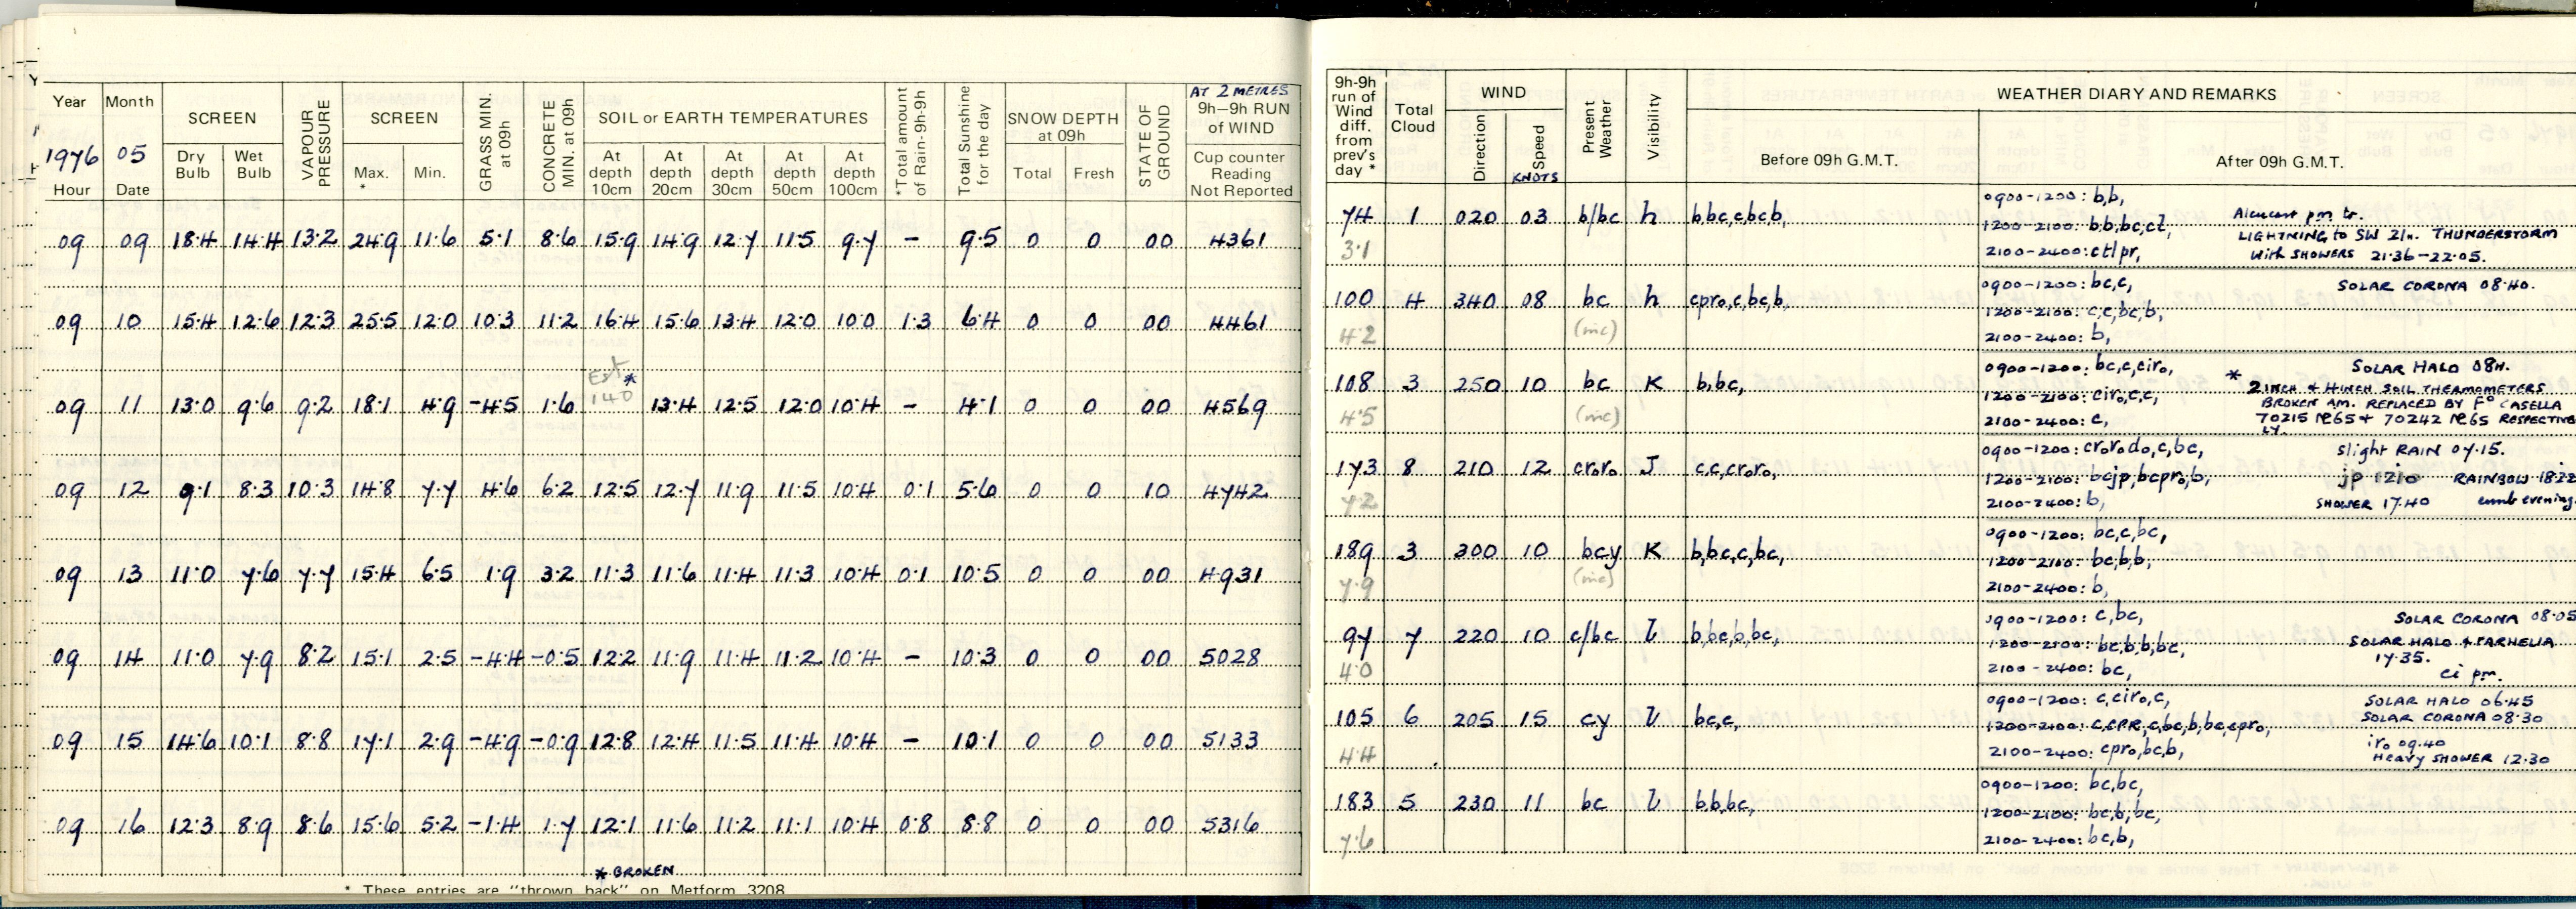 Year Month SCREEN VAPOUR PRESSURE SCREEN GRASS MIN. at 09h CONCRETE MIN. at 09h SOIL or EARTH TEMPERATURES *Total amount of Rain-9h-9h Total Sunshine for the day SNOW DEPTH at 09h STATE OF GROUND AT 2 METRES 9h-9h RUN of WIND
1976 05 Dry Bulb Wet Bulb Max. * Min. At depth 10cm At depth 20cm At depth 30cm At depth 50cm At depth 100cm Total Fresh Cup counter Reading Not Reported
Hour Date
09 09 18.4 14.4 13.2 24.9 11.6 5.1 8.6 15.9 14.9 12.7 11.5 9.7 - 9.5 0 0 00 4361
09 10 15.4 12.6 12.3 25.5 12.0 10.3 11.2 16.4 15.6 13.4 12.0 10.0 1.3 6.4 0 0 00 4461
Est *
09 11 13.0 9.6 9.2 18.1 4.9 -4.5 1.6 140 13.4 12.5 12.0 10.4 - 4.1 0 0 00 4569
09 12 9.1 8.3 10.3 14.8 7.7 4.6 6.2 12.5 12.7 11.9 11.5 10.4 0.1 5.6 0 0 10 4742
09 13 11.0 7.6 7.7 15.4 6.5 1.9 3.2 11.3 11.6 11.4 11.3 10.4 0.1 10.5 0 0 00 4931
09 14 11.0 7.9 8.2 15.1 2.5 -4.4 -0.5 12.2 11.9 11.4 11.2 10.4 - 10.3 0 0 00 5028
09 15 14.6 10.1 8.8 17.1 2.9 -4.9 -0.9 12.8 12.4 11.5 11.4 10.4 - 10.1 0 0 00 5133
09 16 12.3 8.9 8.6 15.6 5.2 -1.4 1.7 12.1 11.6 11.2 11.1 10.4 0.8 8.8 0 0 00 5316
* BROKEN
* These entries are "thrown back" on Metform 3208
9h-9h run of Wind diff. from prev's day * Total Cloud WIND Present Weather Visibility WEATHER DIARY AND REMARKS
Direction Speed KNOTS Before 09h G.M.T. After 09h G.M.T.
0900-1200: b,b,
74 1 020 03 b/bc h bbc,cbcb, 1200-2100: b,b,bc,ct, pm
LIGHTNING to SW 21h. THUNDERSTORM
3.1 2100-2400: ctlpr, with SHOWERS 21.36-22.05.
0900-1200: bc,c, SOLAR CORONA 08.40.
100 4 340 08 bc h cpro,c,bc,b, 1200-2100: c,c,bc,b,
4.2 (mc) 2100-2400: b,
0900-1200: bc,c,ciro, SOLAR HALO 08H.
108 3 250 10 bc K b,bc, * 2 INCH & 4 INCH SOIL THERMOMETERS
1200-2100: ciro,c,c, BROKEN AM. REPLACED BY Fº CASELLA
4.5 (mc) 2100-2400: c, 70215 NPL65 + 70242 NPL65 RESPECTIVE
LY.
0900-1200: crorodo,c,bc, slight RAIN 07.15.
173 8 210 12 croro J c,c,croro, 1200-2100: bcjp,bcpro,b, jp 1210 RAINBOW 18.22
7.2 2100-2400: b, SHOWER 17.40 cumb evening.
0900-1200: bc,c,bc,
189 3 300 10 bcy K b,bc,c,bc, 1200-2100: bc,b,b,
7.9 (mc) 2100-2400: b,
0900-1200: c,bc, SOLAR CORONA 08.05
97 7 220 10 c/bc l b,bc,b,bc, 1200-2100: bc,b,b,bc, SOLAR HALO & PARHELIA
17.35.
4.0 2100-2400: bc, ci pm.
0900-1200: c,ciro,c, SOLAR HALO 06.45
105 6 205 15 cy l bc,c, 1200-2100: c,cPR,c,bc,b,bc,cpro, SOLAR CORONA 08.30
iro 09.40
4.4 2100-2400: cpro,bc,b, Heavy SHOWER 12.30
0900-1200: bc,bc,
183 5 230 11 bc l b,b,bc, 1200-2100: bc,b,bc,
7.6 2100-2400: bc,b,